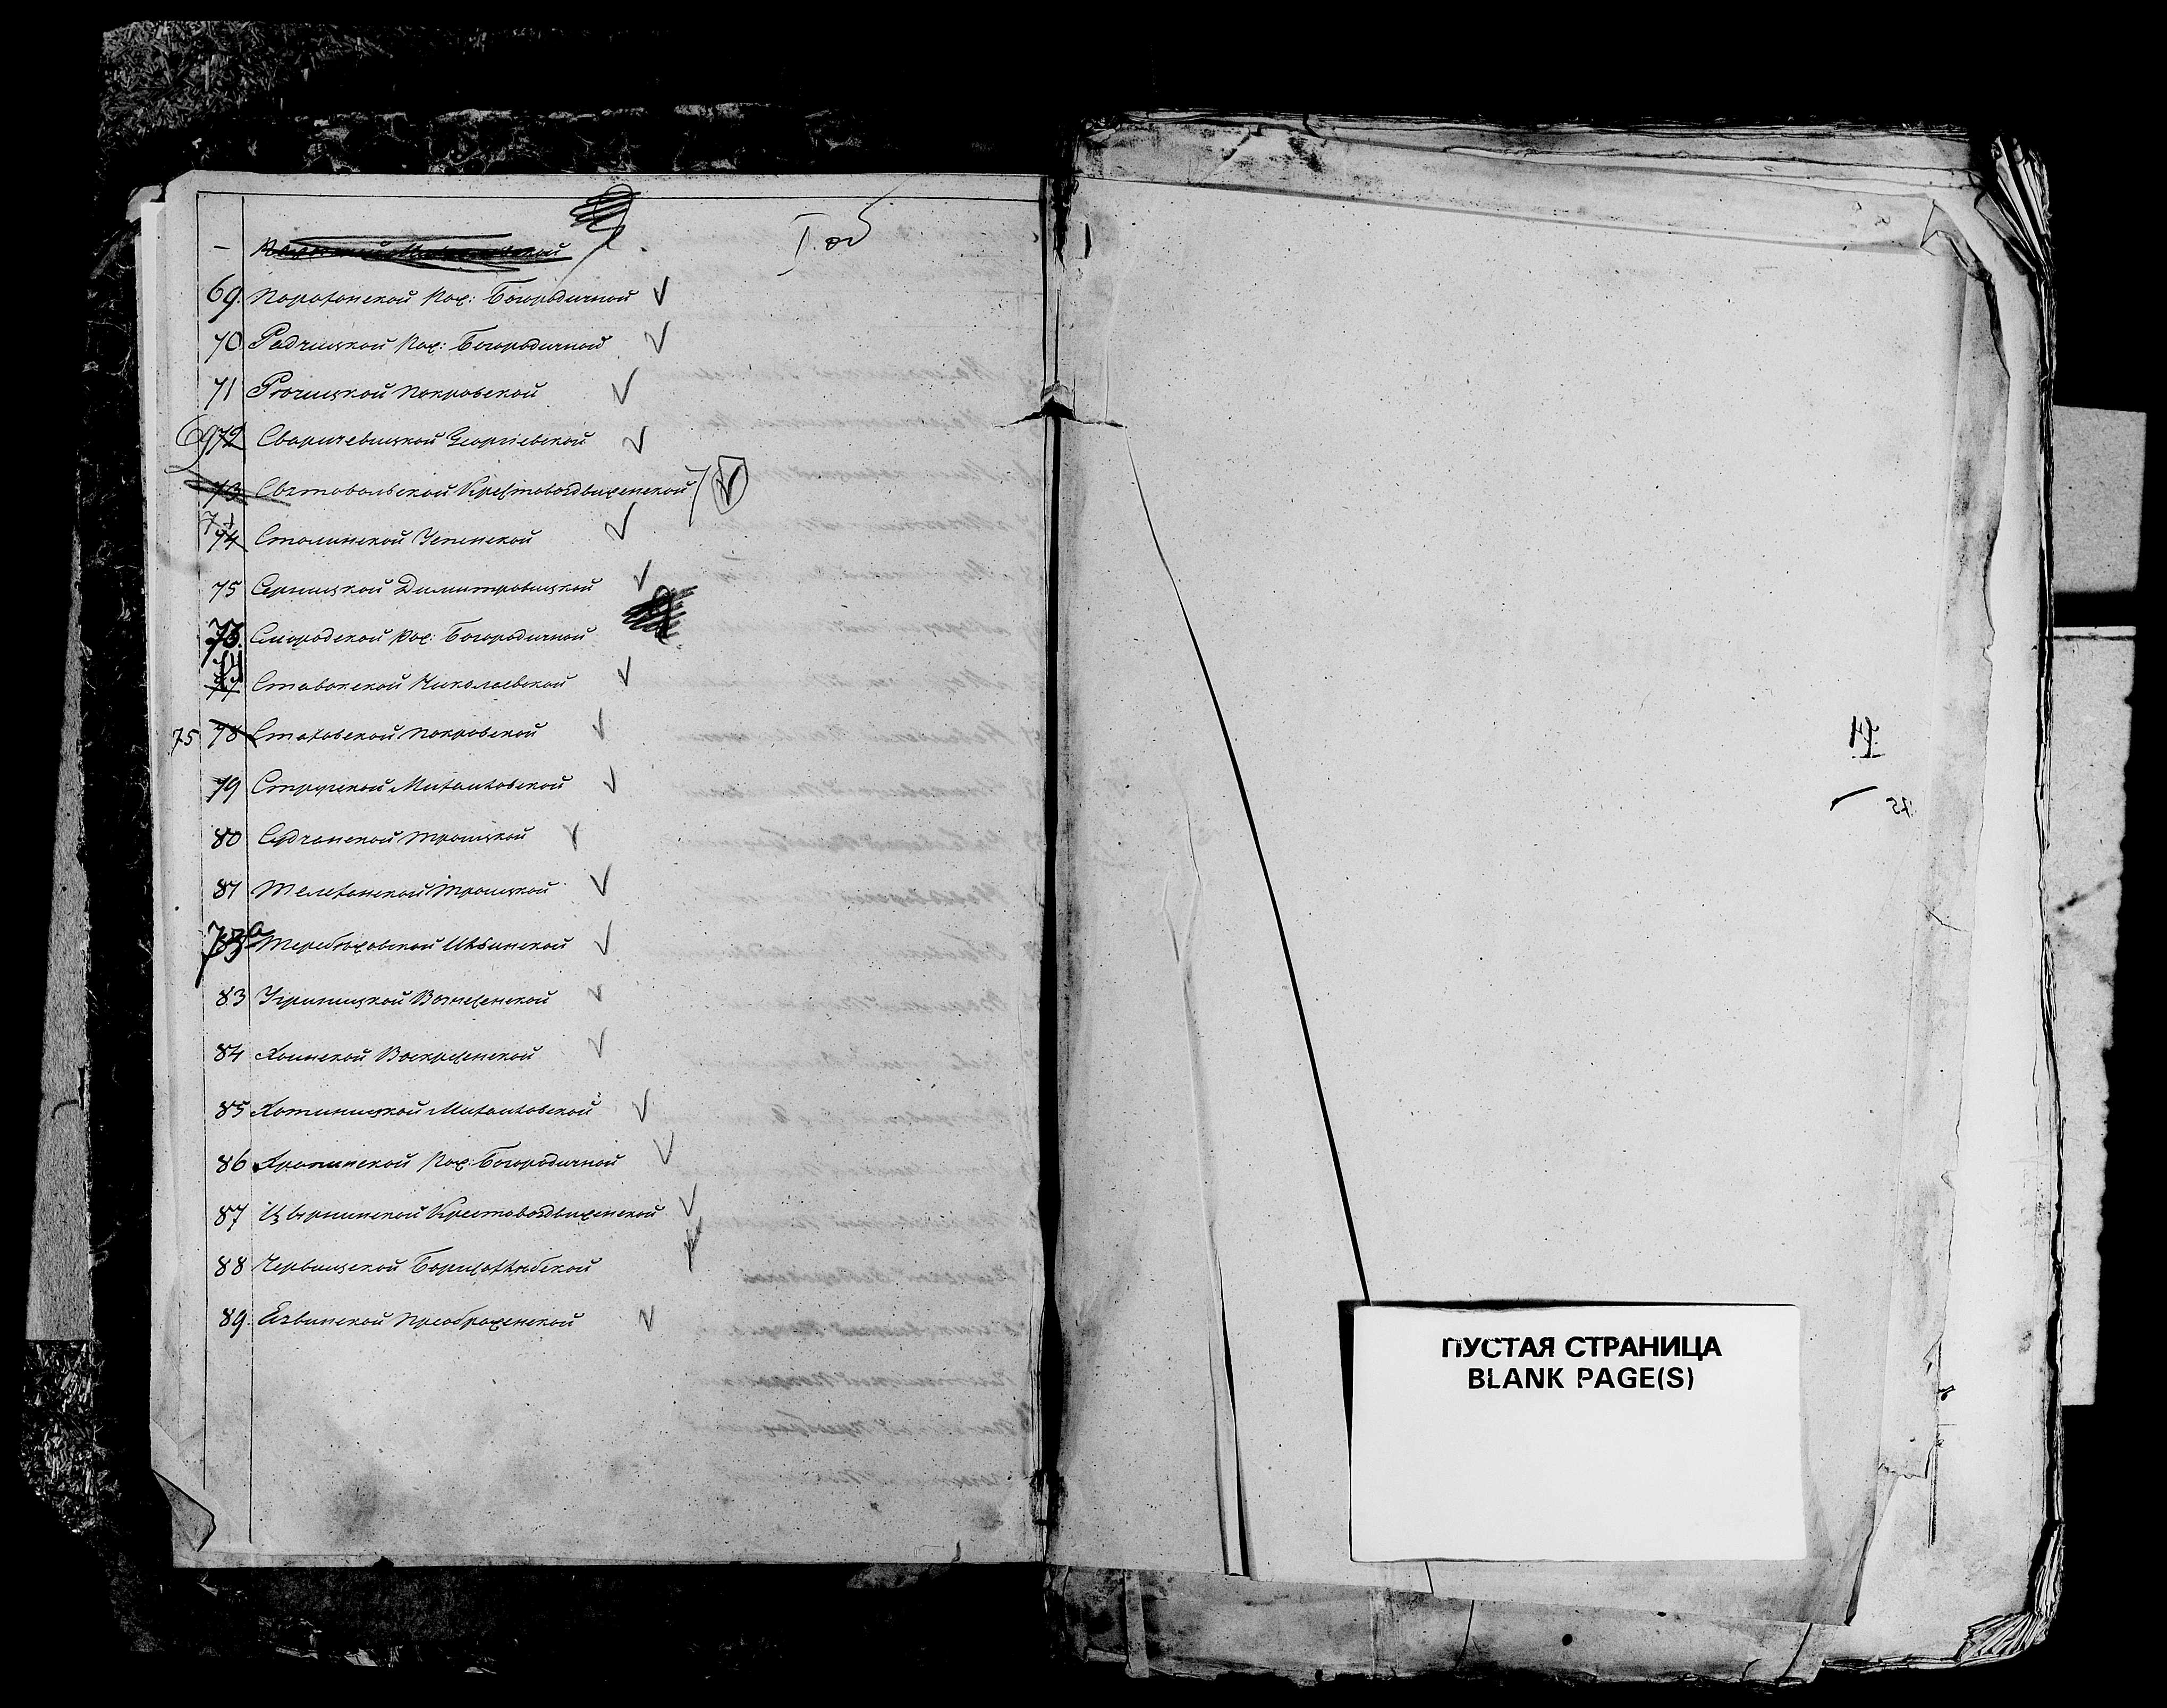 I. об
69. Порохонской Рож: Богородичной
70. Радчицкой Рож: Богородичной
71 Рочицкой Покровской
69 72 Сваричевицкой Георгіевской
73 Святовольской Крестовоздвиженской
71 74 Столинской Успенской
75 Серницкой Димитровицкой
73. Смородской Рож: Богородичной
74 77 Ставокской Николаевской
75 78 Стаховской Покровской
79 Стружской Михайловской
80 Судченской Троицкой
81 Телеханской Троицкой
Теребежовской Ильинской
83 Угриницкой Вознесенской
84 Хоинской Воскресенской
85 Хотыницкой Михайловской
86 Храпинской Рож: Богородичной
87 Крестовоздвиженской
88 Червищской Борисоглѣбской
89. Язвинской Преображенской
ПУСТАЯ СТРАНИЦА
BLANK PAGE(S)